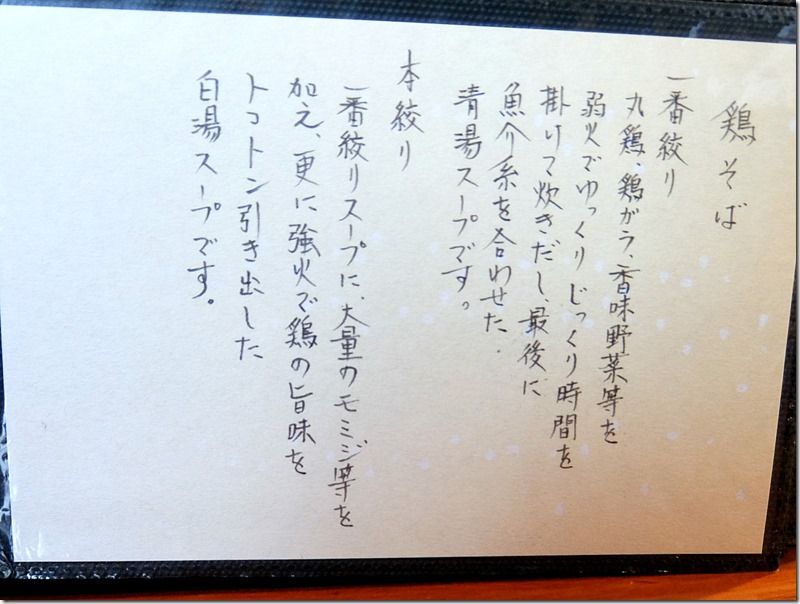 鶏そば
一番絞り
丸鶏、鶏がら、香味野菜等を
弱火でゆっくりじっくり時間を
掛けて炊きだし、最後に
魚介系を合わせた
清湯スープです。
本絞り
一番絞りスープに、大量のモミジ等を
加え、更に強火で鶏の旨味を
トコトン引き出した
白湯スープです。